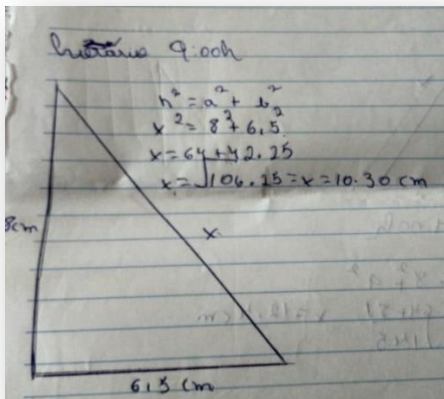 horário 9:00h
h² = a² + b²
x² = 8² + 6,5²
x = 64 + 42.25
x = √106.25 = x = 10.30 cm
8cm
x
6,5 cm